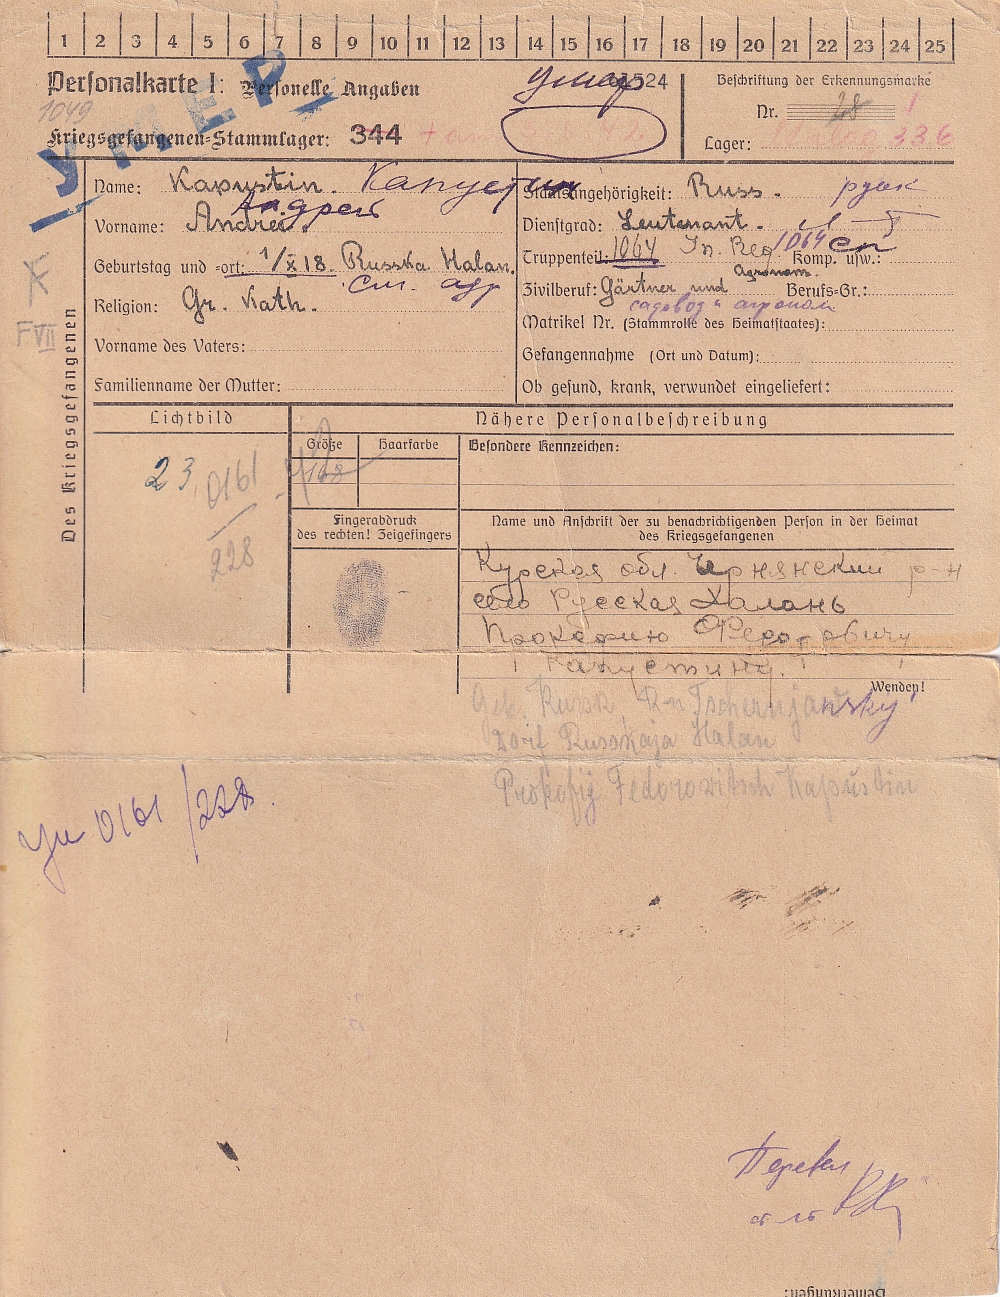 1 2 3 4 5 6 7 8 9 10 11 12 13 14 15 16 17 18 19 20 21 22 23 24 25
Personalkarte I: Personelle Angaben
1049
Kriegsgefangenen-Stammlager: 344
УМЕР
умер 524
Beschriftung der Erkennungsmarke
Nr. 28
Lager: 336
Des Kriegsgefangenen
Name: Kapustin. Капустин
Vorname: Andrei Андрей
Geburtstag und -ort: 1/X 18. Russka Halan.
см. адр
Religion: Gr. Kath.
Vorname des Vaters:
Familienname der Mutter:
Staatsangehörigkeit: Russ.
Dienstgrad: Leutenant.
Truppenteil: 1064 In. Reg. 1064 сп Komp. usw.:
Zivilberuf: Gärtner und Agronom. Berufs-Gr.:
садовод и агроном
Matrikel Nr. (Stammrolle des Heimatstaates):
Gefangennahme (Ort und Datum):
Ob gesund, krank, verwundet eingeliefert:
F VII
Lichtbild
23
0161
228
Nähere Personalbeschreibung
Größe Haarfarbe Besondere Kennzeichen:
168
Fingerabdruck
des rechten! Zeigefingers
Name und Anschrift der zu benachrichtigenden Person in der Heimat
des Kriegsgefangenen
Курская обл. Чернянский р-н
село Русская Халань
Прокофию Федоровичу
Капустину.
Wenden!
Geb. Kursk R-n Tschernjansky
Dorf Russkaja Halan
Prokofij Fedorowitsch Kapustin
0161/228.
Перевел
Bemerkungen: